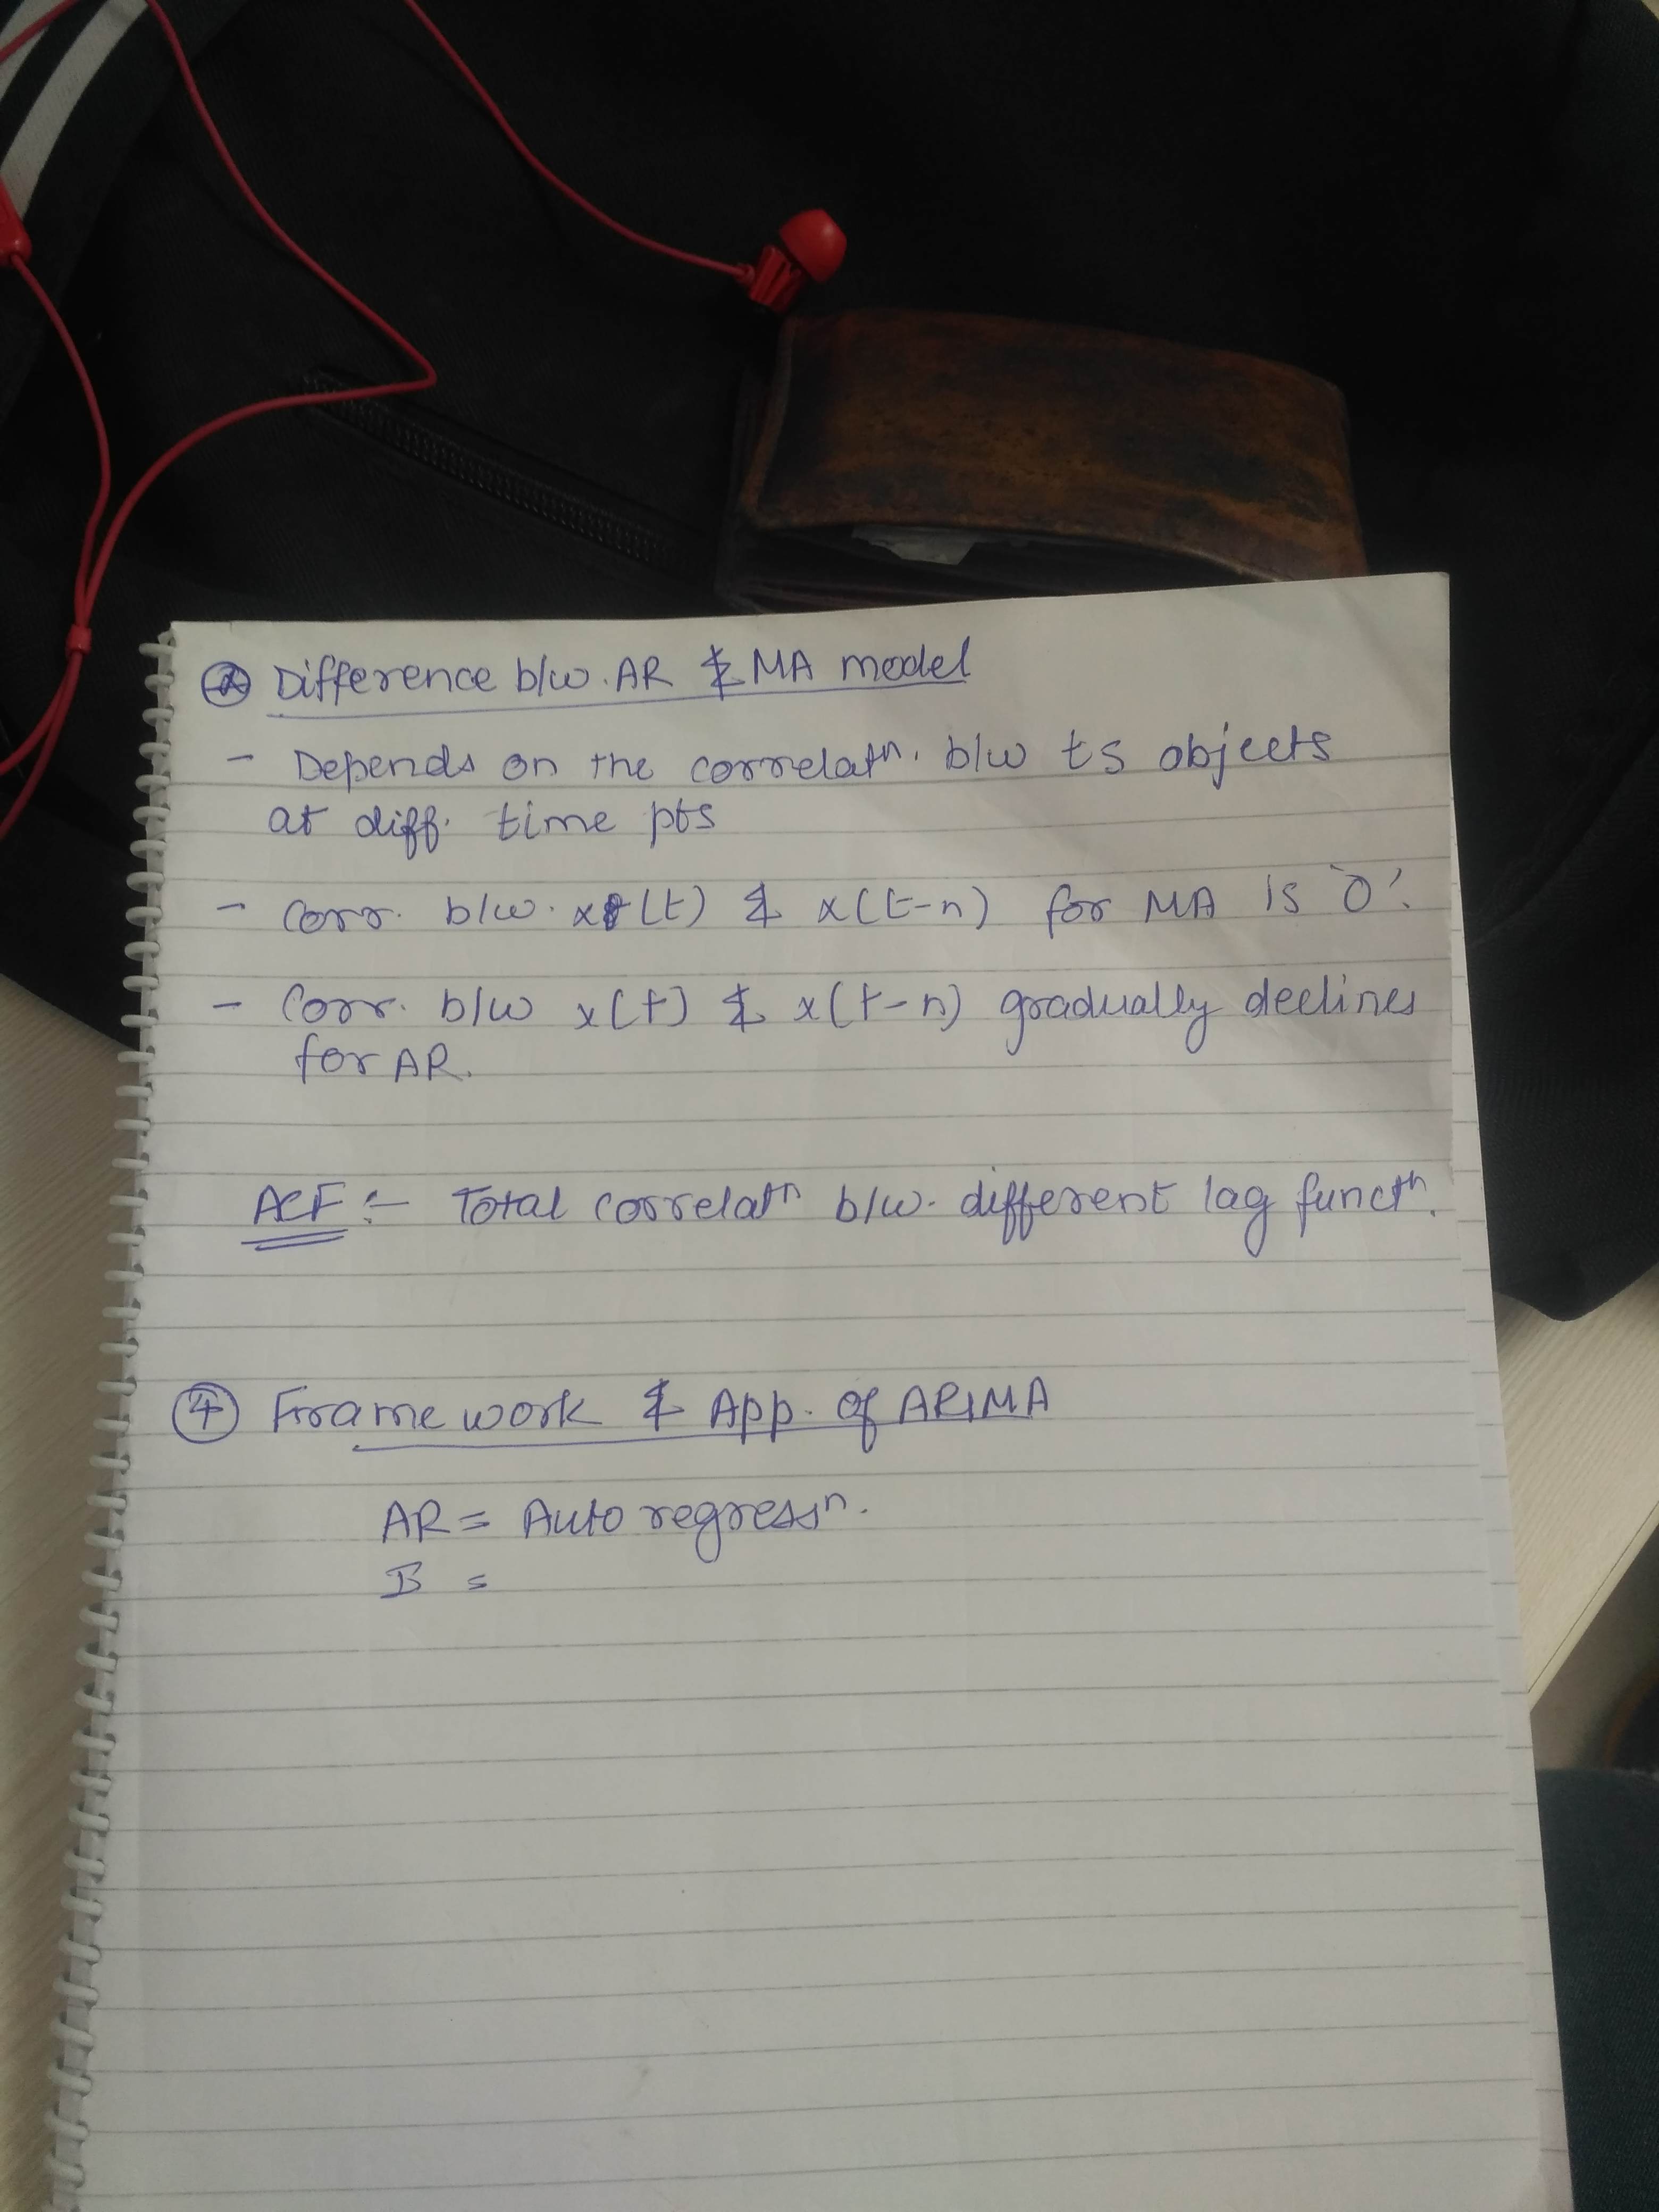 Difference b/w. AR & MA model
- Depends on the correlatn. b/w ts objects
at diff. time pts
- Corr. b/w. x(t) & x(t-n) for MA is '0'.
- Corr. b/w x(t) & x(t-n) gradually declines
for AR.
ACF :- Total correlatn b/w. different lag functn.
4 Framework & App. of ARIMA
AR = Auto regressn.
I =